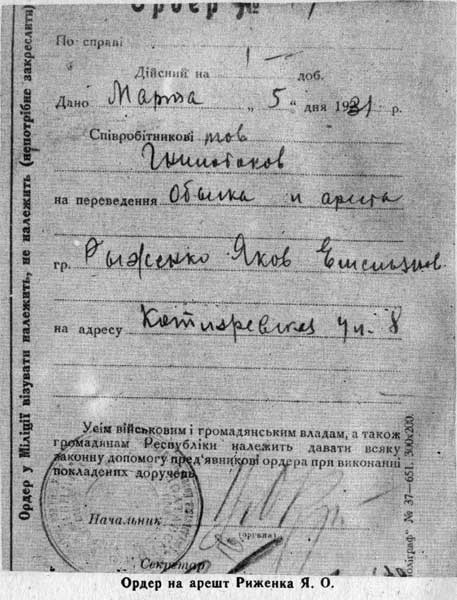 Ордер №
По справі
Дійсний на 1 доб.
Дано Марта „ 5 " дня 1931 р.
Співробітникові тов
на переведення Обыска и ареста
гр. Рыженко Яков
на адресу Котляревская ул. 8
Усім військовим і громадянським владам, а також
громадянам Республіки належить давати всяку
законну допомогу пред'явникові ордера при виконанні
покладених доручень
Начальник
(підпис)
Секретар
Ордер у Міліції візувати належить, не належить (непотрібне закреслити)
№ 37—651. 300х200.
Ордер на арешт Риженка Я. О.